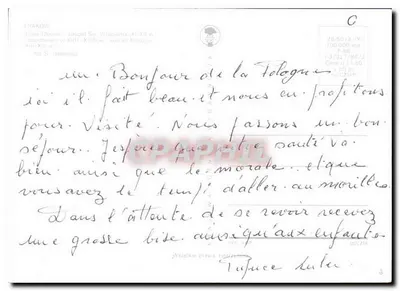 un. Bonjour de la Pologne
ici il fait beau et nous en profitons
pour. Visité. Nous passons un bon
séjour. J'espère que votre santé va
bien. ainsi que le morale. et que
vous avez le temps d'aller. au morilles
Dans l'attente de se revoir recevez
une grosse bise. ainsi qu'aux enfants.